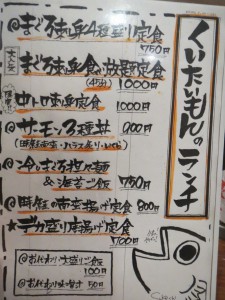 くいたいもんのランチ
@まぐろ刺身4種盛り定食
750円
大人気 まぐろ刺身食べ放題定食
(45分) 1000円
中トロ刺身定食 1000円
@サーモン3種丼 900円
@冷しまぐろ担々麺
&海苔ご飯 750円
@時鮭の南蛮揚げ定食 800円
★デカ盛り唐揚げ定食
700円
@おかわり大盛りご飯
100円
@おかわり味噌汁 50円